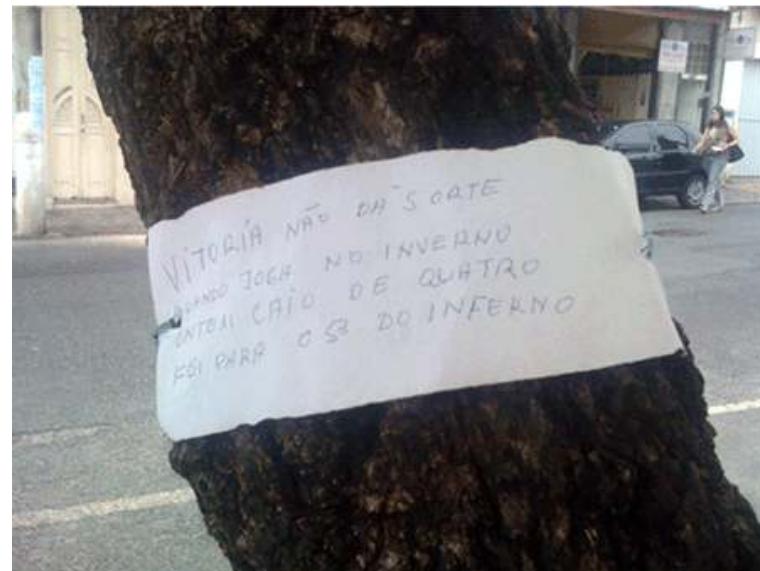 VITORIA NÃO DA SORTE
QUANDO JOGA NO INVERNO
ONTEM CAIO DE QUATRO
FOI PARA O 5º DO INFERNO